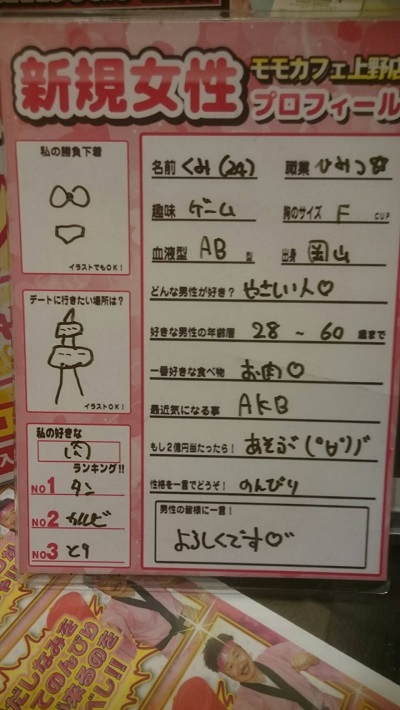 新規女性
モモカフェ上野店
プロフィール
私の勝負下着
イラストでもOK!
デートに行きたい場所は?
イラストOK!
私の好きな
肉
ランキング!!
NO1 タン
NO2 カルビ
NO3 とり
名前 くみ(24) 職業 ひみつ
趣味 ゲーム 胸のサイズ F CUP
血液型 AB 型 出身 岡山
どんな男性が好き? やさしい人♡
好きな男性の年齢層 28 ~ 60 歳まで
一番好きな食べ物 お肉♡
最近気になる事 AKB
もし2億円当たったら! あそぶ(°∀°)/
性格を一言でどうぞ! のんびり
男性の皆様に一言!
よろしくです♡
だしなみを
てのんびり
来るのを
べし!!